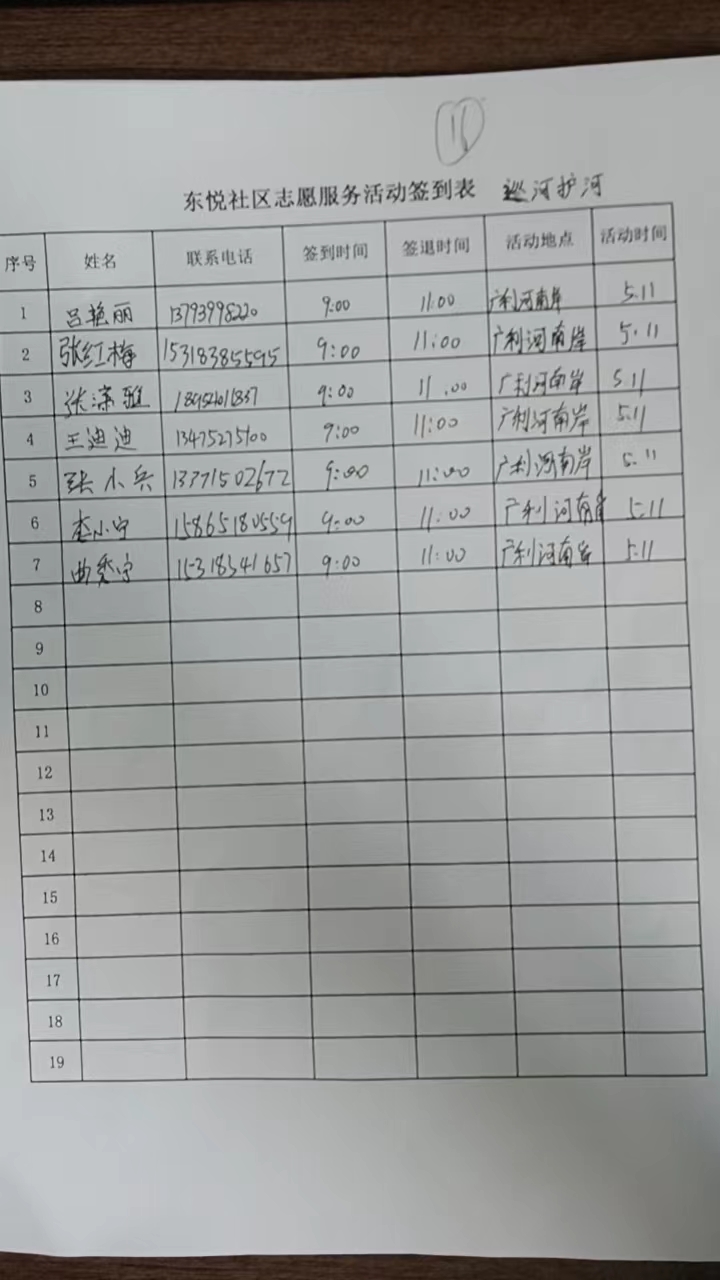 11
东悦社区志愿服务活动签到表 巡河护河
序号 姓名 联系电话 签到时间 签退时间 活动地点 活动时间
1 吕艳丽 13793998220 9:00 11:00 广利河南岸 5.11
2 张红梅 15318385595 9:00 11:00 广利河南岸 5.11
3 张 雅 9:00 11.00 广利河南岸 5.11
4 王迪迪 13475275700 9:00 11:00 广利河南岸 5.11
5 张小兵 13771502672 9:00 11:00 广利河南岸 5.11
6 李小宁 15865180559 9:00 11:00 广利河南岸 5.11
7 曲秀宁 15318341657 9:00 11:00 广利河南岸 5.11
8
9
10
11
12
13
14
15
16
17
18
19